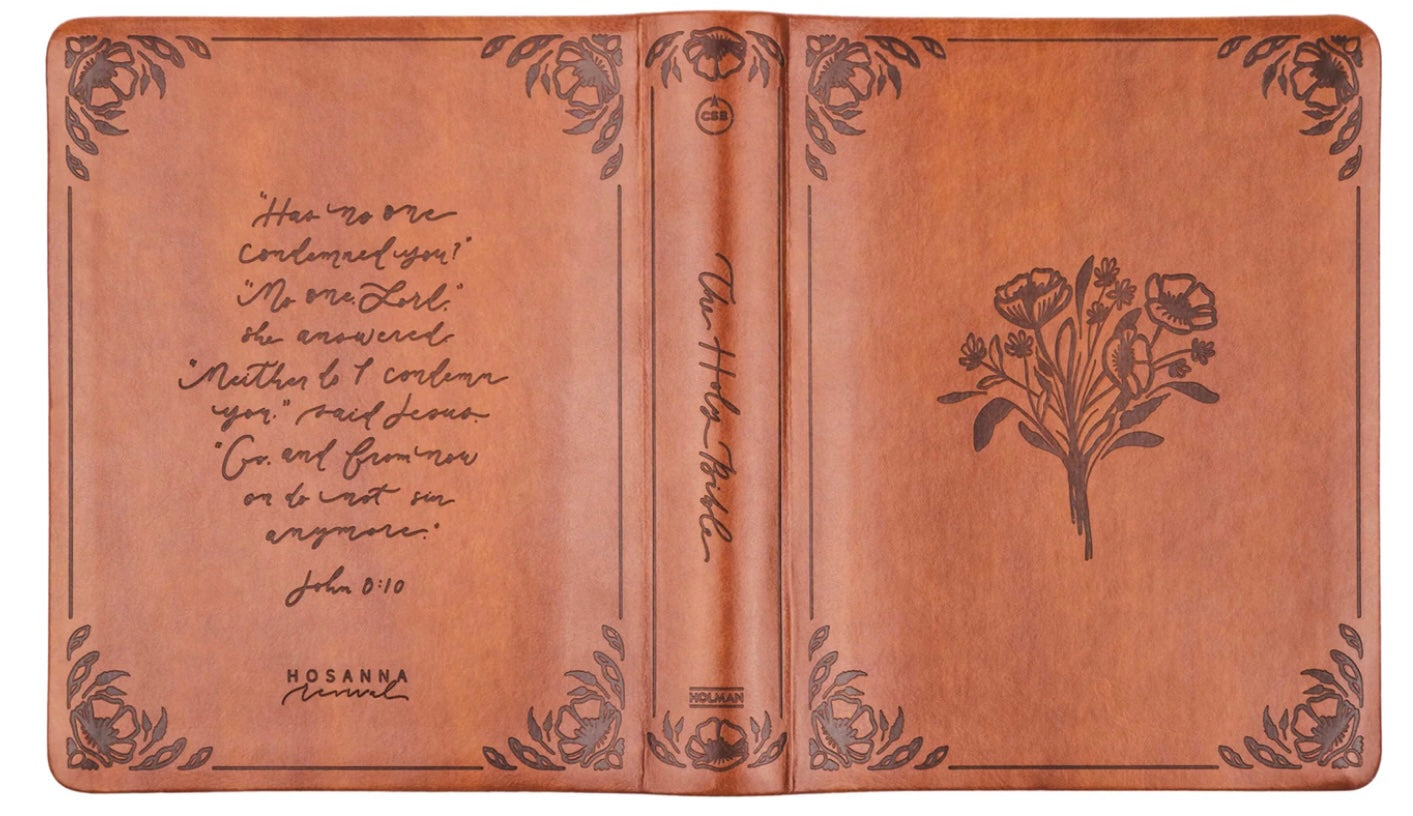 "Has no one
condemned you?"
"No one, Lord,"
she answered.
"Neither do I condemn
you." said Jesus.
"Go, and from now
on do not sin
anymore."
John 8:10
HOSANNA
revival
CSB
The Holy Bible
HOLMAN